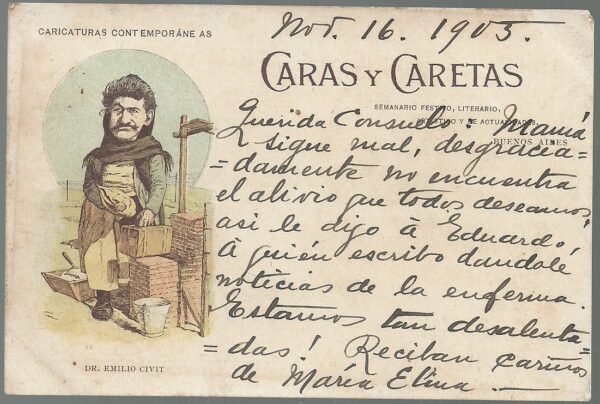 Nov. 16. 1905.
CARICATURAS CONTEMPORÁNEAS
CARAS Y CARETAS
SEMANARIO FESTIVO, LITERARIO,
ARTÍSTICO Y DE ACTUALIDADES.
BUENOS AIRES
Querida Consuelo: Mamá
sigue mal, desgracia=
=damente no encuentra
el alivio que todos deseamos,
asi le digo à Eduardo,
à quién escribo dandole
noticias de la enferma.
Estamos tan desalenta=
=das! Reciban cariños
de María Elina.
DR. EMILIO CIVIT